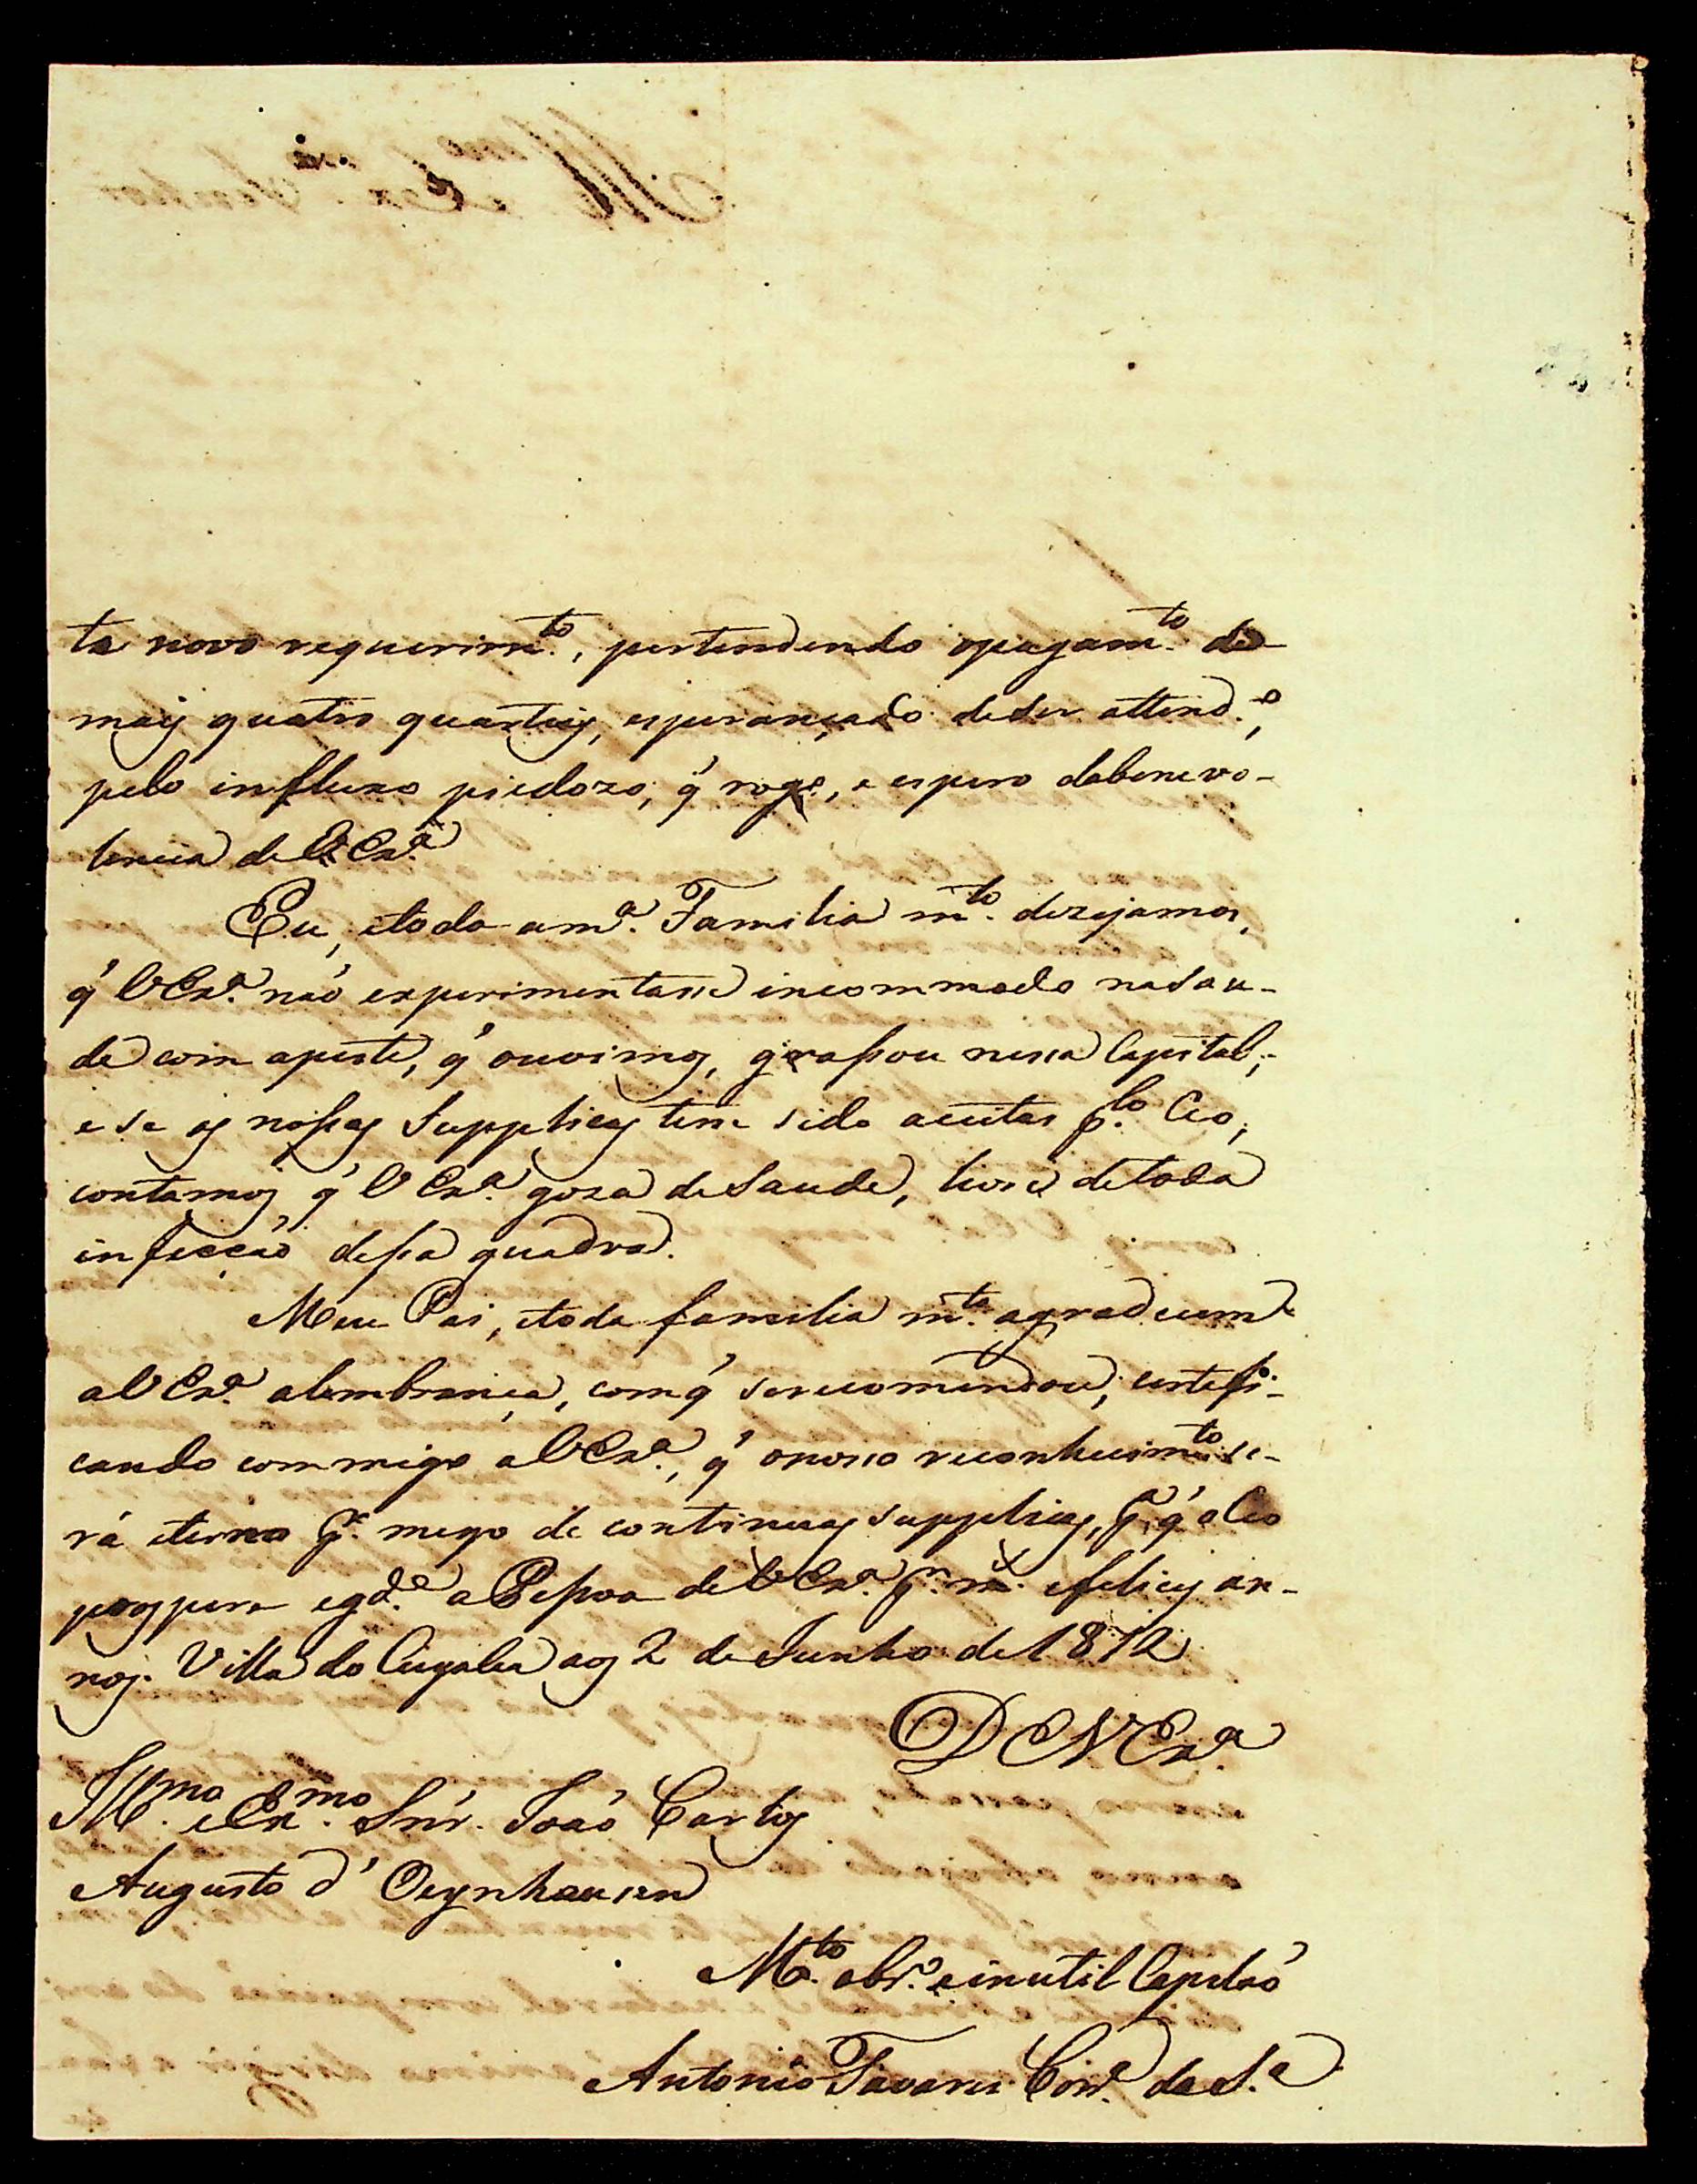 ta novo requerim.to, pertendendo opagam.to de
mais quatro quarteis, esperançado deser attend.o,
pelo influxo piedozo, q' rogo, e espero dabenevo-
lencia de VEx.a
Eu, etoda am.a Familia m.to dezejamos,
q' VEx.a naõ experimentasse incommodo nasau-
de com apeste, q' ouvimos, grassou nessa Capital;
e se as nossas Supplicas tem sido aceitas p.lo Ceo,
contamos q' VEx.a goza deSaude, livre detoda
infecçaõ dessa quadra.
Meu Pai, etoda familia m.to agradecem
aVEx.a alembrança, comq' serecomendou; certefi-
cando commigo aVEx.a, q' onosso reconhecim.to se-
rá eterno p.r meyo de continuas supplicas, p.a q' o Ceo
prospere egd.e aPessoa deVEx.a p.r m.s efelices an-
nos. Villa do aos 2 de Junho de 1812
D VEx.a
Ill.mo eEx.mo Snr. Joaõ Carlos
Augusto d' Oeynhausen
M.to obr.o einutil Capitaõ
Antonio Tavares Corr.a da S.a